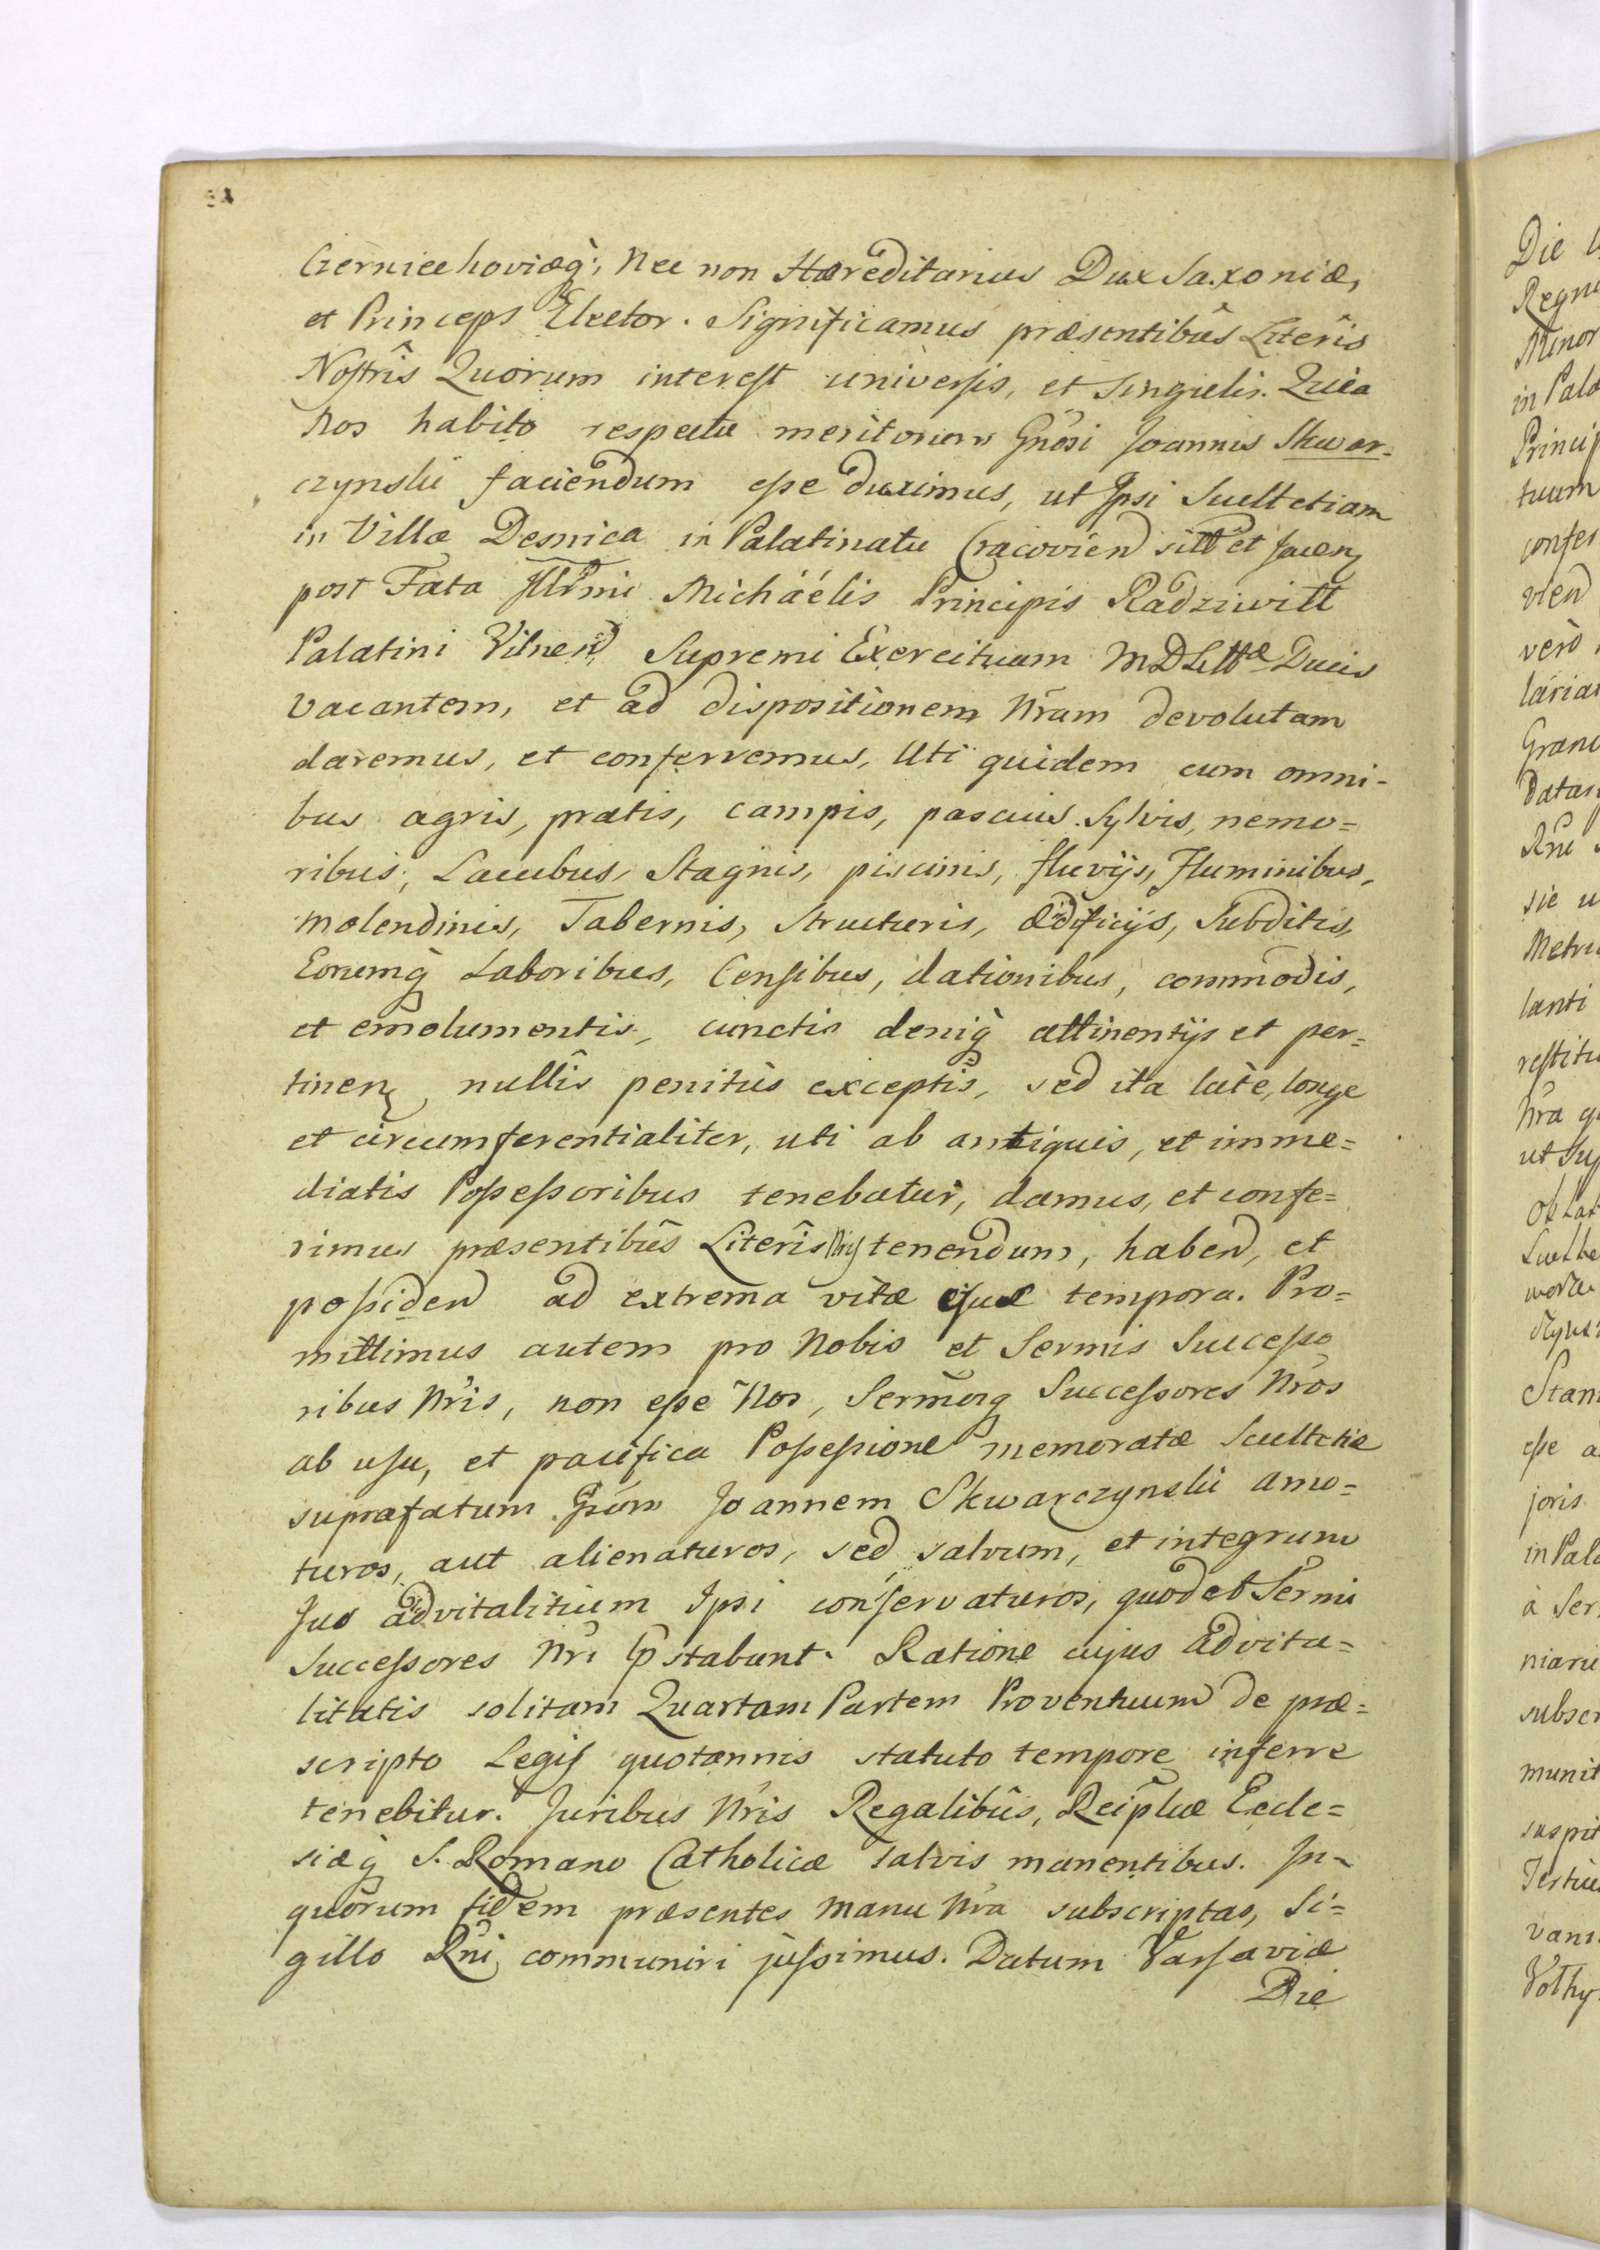 Czerniechoviæq̀, Nec non Hæreditarius Dux Saxoniæ,
et Princeps Elector. Significamus præsentibûs Literîs
Nostrîs Quorum interest universis, et singulis. Quia
Nos habito respectu meritorum Gñosi Joannis Skwar-
czynski faciendum esse duximus, ut Ipsi Scultetiam
in Villa Desnica in Palatinatu Cracovien sitt et Jacen
post Fata Illrmi Michaélis Principis Radziwill
Palatini Vilnen Supremi Exercituum MDLittæ Ducis
vacantem, et ad dispositionem Nram devolutam
daremus, et conferremus, Uti quidem cum omni-
bus agris, pratis, campis, pascuis Sylvis, nemo=
ribus, Lacubus, Stagnis, piscinis, fluvijs, Fluminibus,
Molendinis, Tabernis, Structuris, ædificijs, Subditis,
Eorumq̀ Laboribus, Censibus, dationibus, commodis,
et emolumentis, cunctis deniq̀ attinentijs et per=
tinen, nullîs penitùs exceptîs, sed ita latè, longe
et circumferentialiter, uti ab antiquis, et imme=
diatis Possessoribus tenebatur, damus, et confe=
rimus præsentibûs Literîs Nris tenendum, habend, et
possidend ad extrema vitæ suæ tempora. Pro=
mittimus autem pro Nobis et Sermis Successo
ribus Nris, non esse Nos, Sermosq Successores Nros
ab usu, et pacifica Possessione memoratæ Scultetiæ
suprafatum Gsum Joannem Skwarczynski amo=
turos, aut alienaturos, sed salvum, et integrum
Jus advitalitium Ipsi conservaturos, quod et Sermi
Successores Nri pstabunt. Ratione cujus advita=
litatis solitam Quartam Partem Proventuum de præ=
scripto Legis quotannis statuto tempore inferre
tenebitur. Juribus Nris Regalibûs, Reiplcæ Eccle=
siæq̀ S. Romano Catholicæ salvis manentibus. In-
quorum fidem præsentes manu Nra subscriptas, Si=
gillo Rni communiri jussimus. Datum Varsaviæ
Die
Die
Regni
Minor
in Pala
Princip
tuum
confes
vien
verò
larias
Grane
datam
Rni
sie u
Metri
lanti
restitu
Nra q
ut Su
Stan
esse a
joris
in Pala
à Ser
niaru
subscr
munit
suspit
Testiu
vani
Volhy